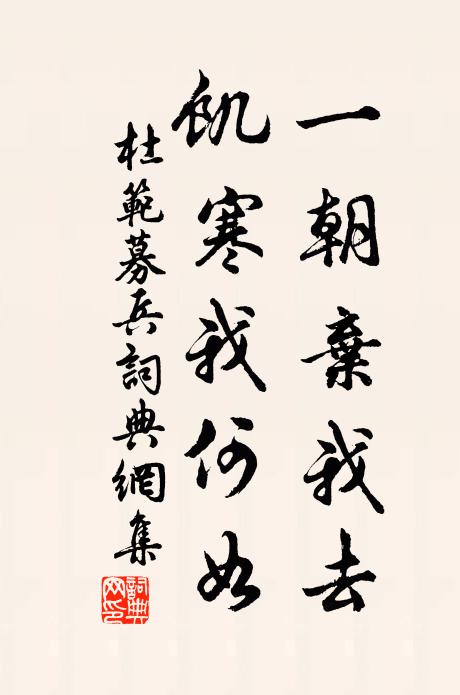 一朝棄我去
飢寒我何如
杜範募兵詞典網集
詞典网印